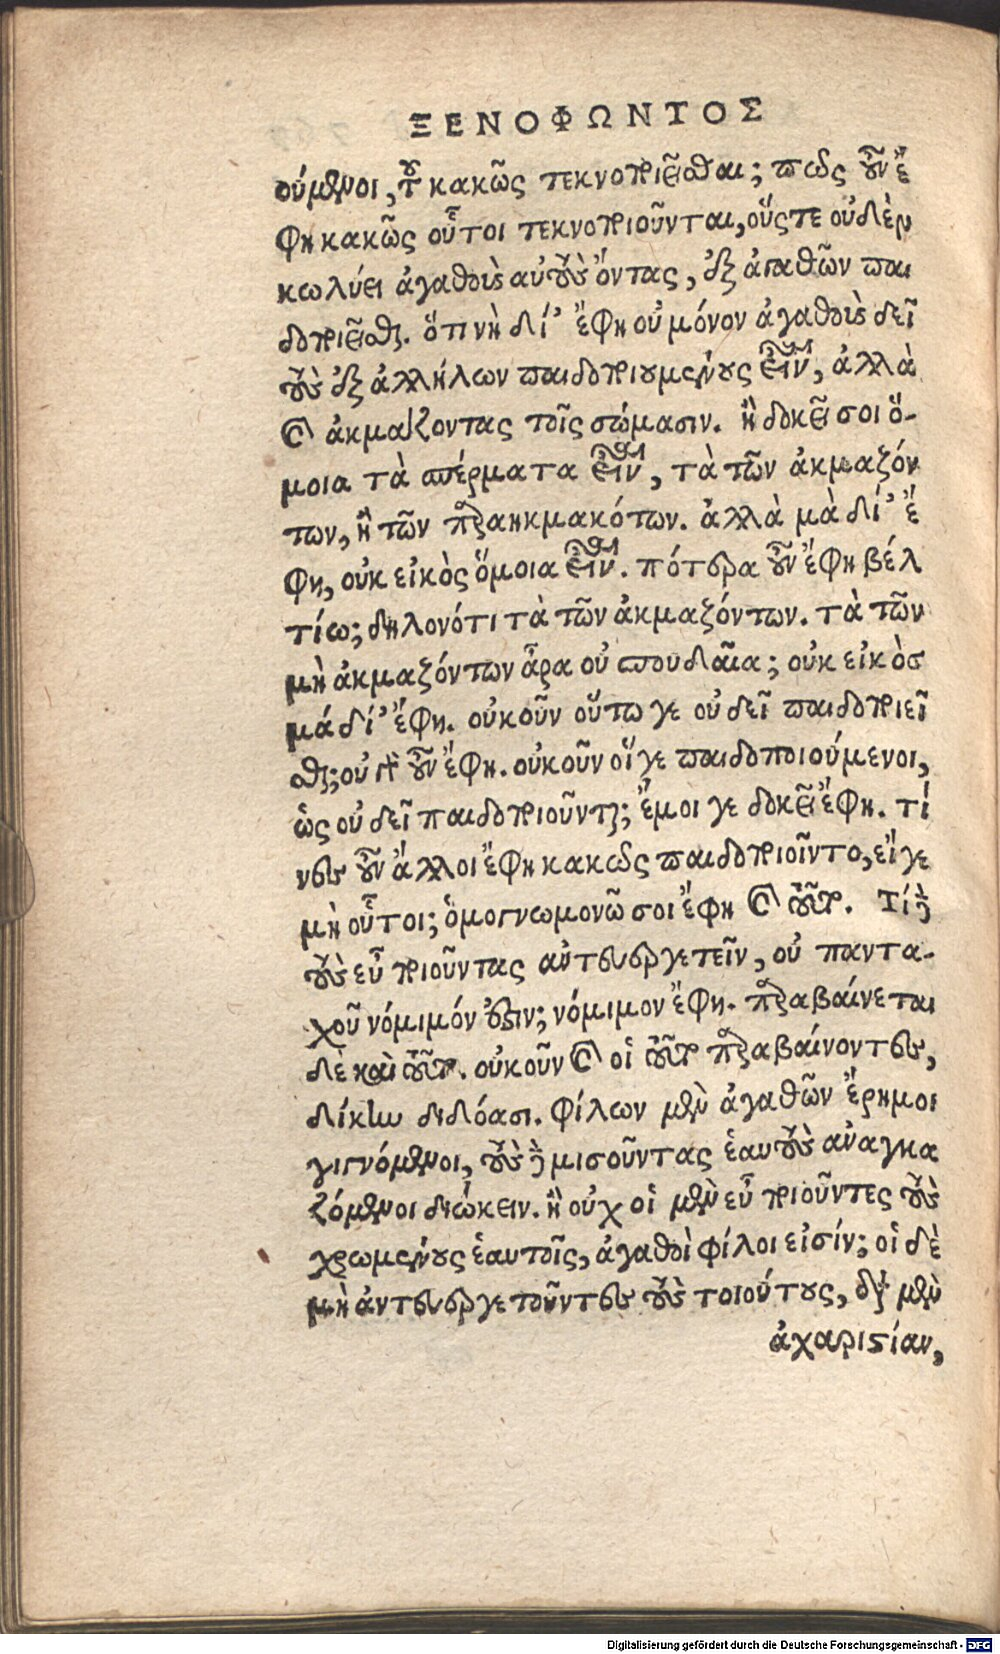 ΞΕΝΟΦΩΝΤΟΣ
ούμενοι, τοῦ κακῶς τεκνοποιεῖσθαι; πῶς οὖν ἔ
φη κακῶς οὗτοι τεκνοποιοῦνται, οὕςτε οὐδὲν
κωλύει ἀγαθοὺς αὐτοὺς ὄντας, ἐξ ἀγαθῶν παι
δοποιεῖσθαι. ὅτι νὴ δί’ ἔφη οὐ μόνον ἀγαθοὺς δεῖ
τοὺς ἐξ ἀλλήλων παιδοποιουμένους εἶναι, ἀλλὰ
καὶ ἀκμάζοντας τοῖς σώμασιν. ἢ δοκεῖ σοι ὅ-
μοια τὰ σπέρματα εἶναι, τὰ τῶν ἀκμαζόν
των, ἢ τῶν παρακμακότων. ἀλλὰ μὰ δί’ ἔ
φη, οὐκ εἰκὸς ὅμοια εἶναι. πότερα οὖν ἔφη βέλ
τίω; δηλονότι τὰ τῶν ἀκμαζόντων. τὰ τῶν
μὴ ἀκμαζόντων ἆρα οὐ σπουδαῖα; οὐκ εἰκὸσ
μά δί’ ἔφη. οὐκοῦν οὕτω γε οὐ δεῖ παιδοποιεῖ
σθαι; οὐ γὰρ οὖν ἔφη. οὐκοῦν οἵ γε παιδοποιούμενοι,
ὡς οὐ δεῖ παιδοποιοῦνται; ἔμοι γε δοκεῖ ἔφη. τί
νες οὖν ἄλλοι ἔφη κακῶς παιδοποιοῖντο, εἴ γε
μὴ οὗτοι; ὁμογνωμονῶ σοι ἔφη καὶ τοῦτο. Τί δὲ
τοὺς εὖ ποιοῦντας αὐτευεργετεῖν, οὐ παντα-
χοῦ νόμιμόν ἐστιν; νόμιμον ἔφη. παραβαίνεται
δὲ καὶ τοῦτο. οὐκοῦν καὶ οἱ τοῦτο παραβαίνοντες,
δίκην διδόασι. φίλων μὲν ἀγαθῶν ἔρημοι
γιγνόμενοι, τοὺς δὲ μισοῦντας ἑαυτοὺς ἀναγκα
ζόμενοι διώκειν. ἢ οὐχ οἱ μὲν εὖ ποιοῦντες τοὺς
χρωμένους ἑαυτοῖς, ἀγαθοὶ φίλοι εἰσίν; οἱ δὲ
μὴ ἀντευεργετοῦντες τοὺς τοιούτους, διὰ μὲν
ἀχαριστίαν,
Digitalisierung gefördert durch die Deutsche Forschungsgemeinschaft - DFG